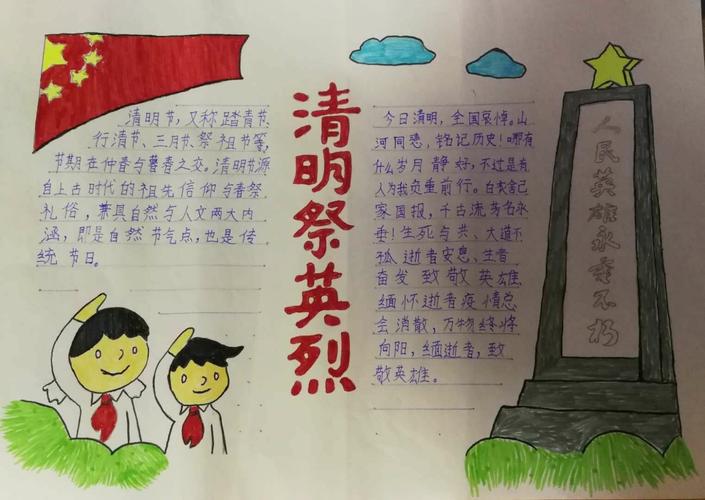 清明节，又称踏青节、
行清节、三月节、祭祖节等，
节期在仲春与暮春之交。清明节源
自上古时代的祖先信仰与春祭
礼俗，兼具自然与人文两大内
涵，即是自然节气点，也是传
统节日。
清明祭英烈
今日清明，全国哀悼。山
河同悲，铭记历史！哪有
什么岁月静好，不过是有
人为我负重前行。白衣舍己
家国报，千古流芳名永
垂！生死与共、大道不
孤逝者安息、生者
奋发致敬英雄
缅怀逝者疫情总
会消散，万物终将
向阳，缅逝者，致
敬英雄。
人民英雄永垂不朽